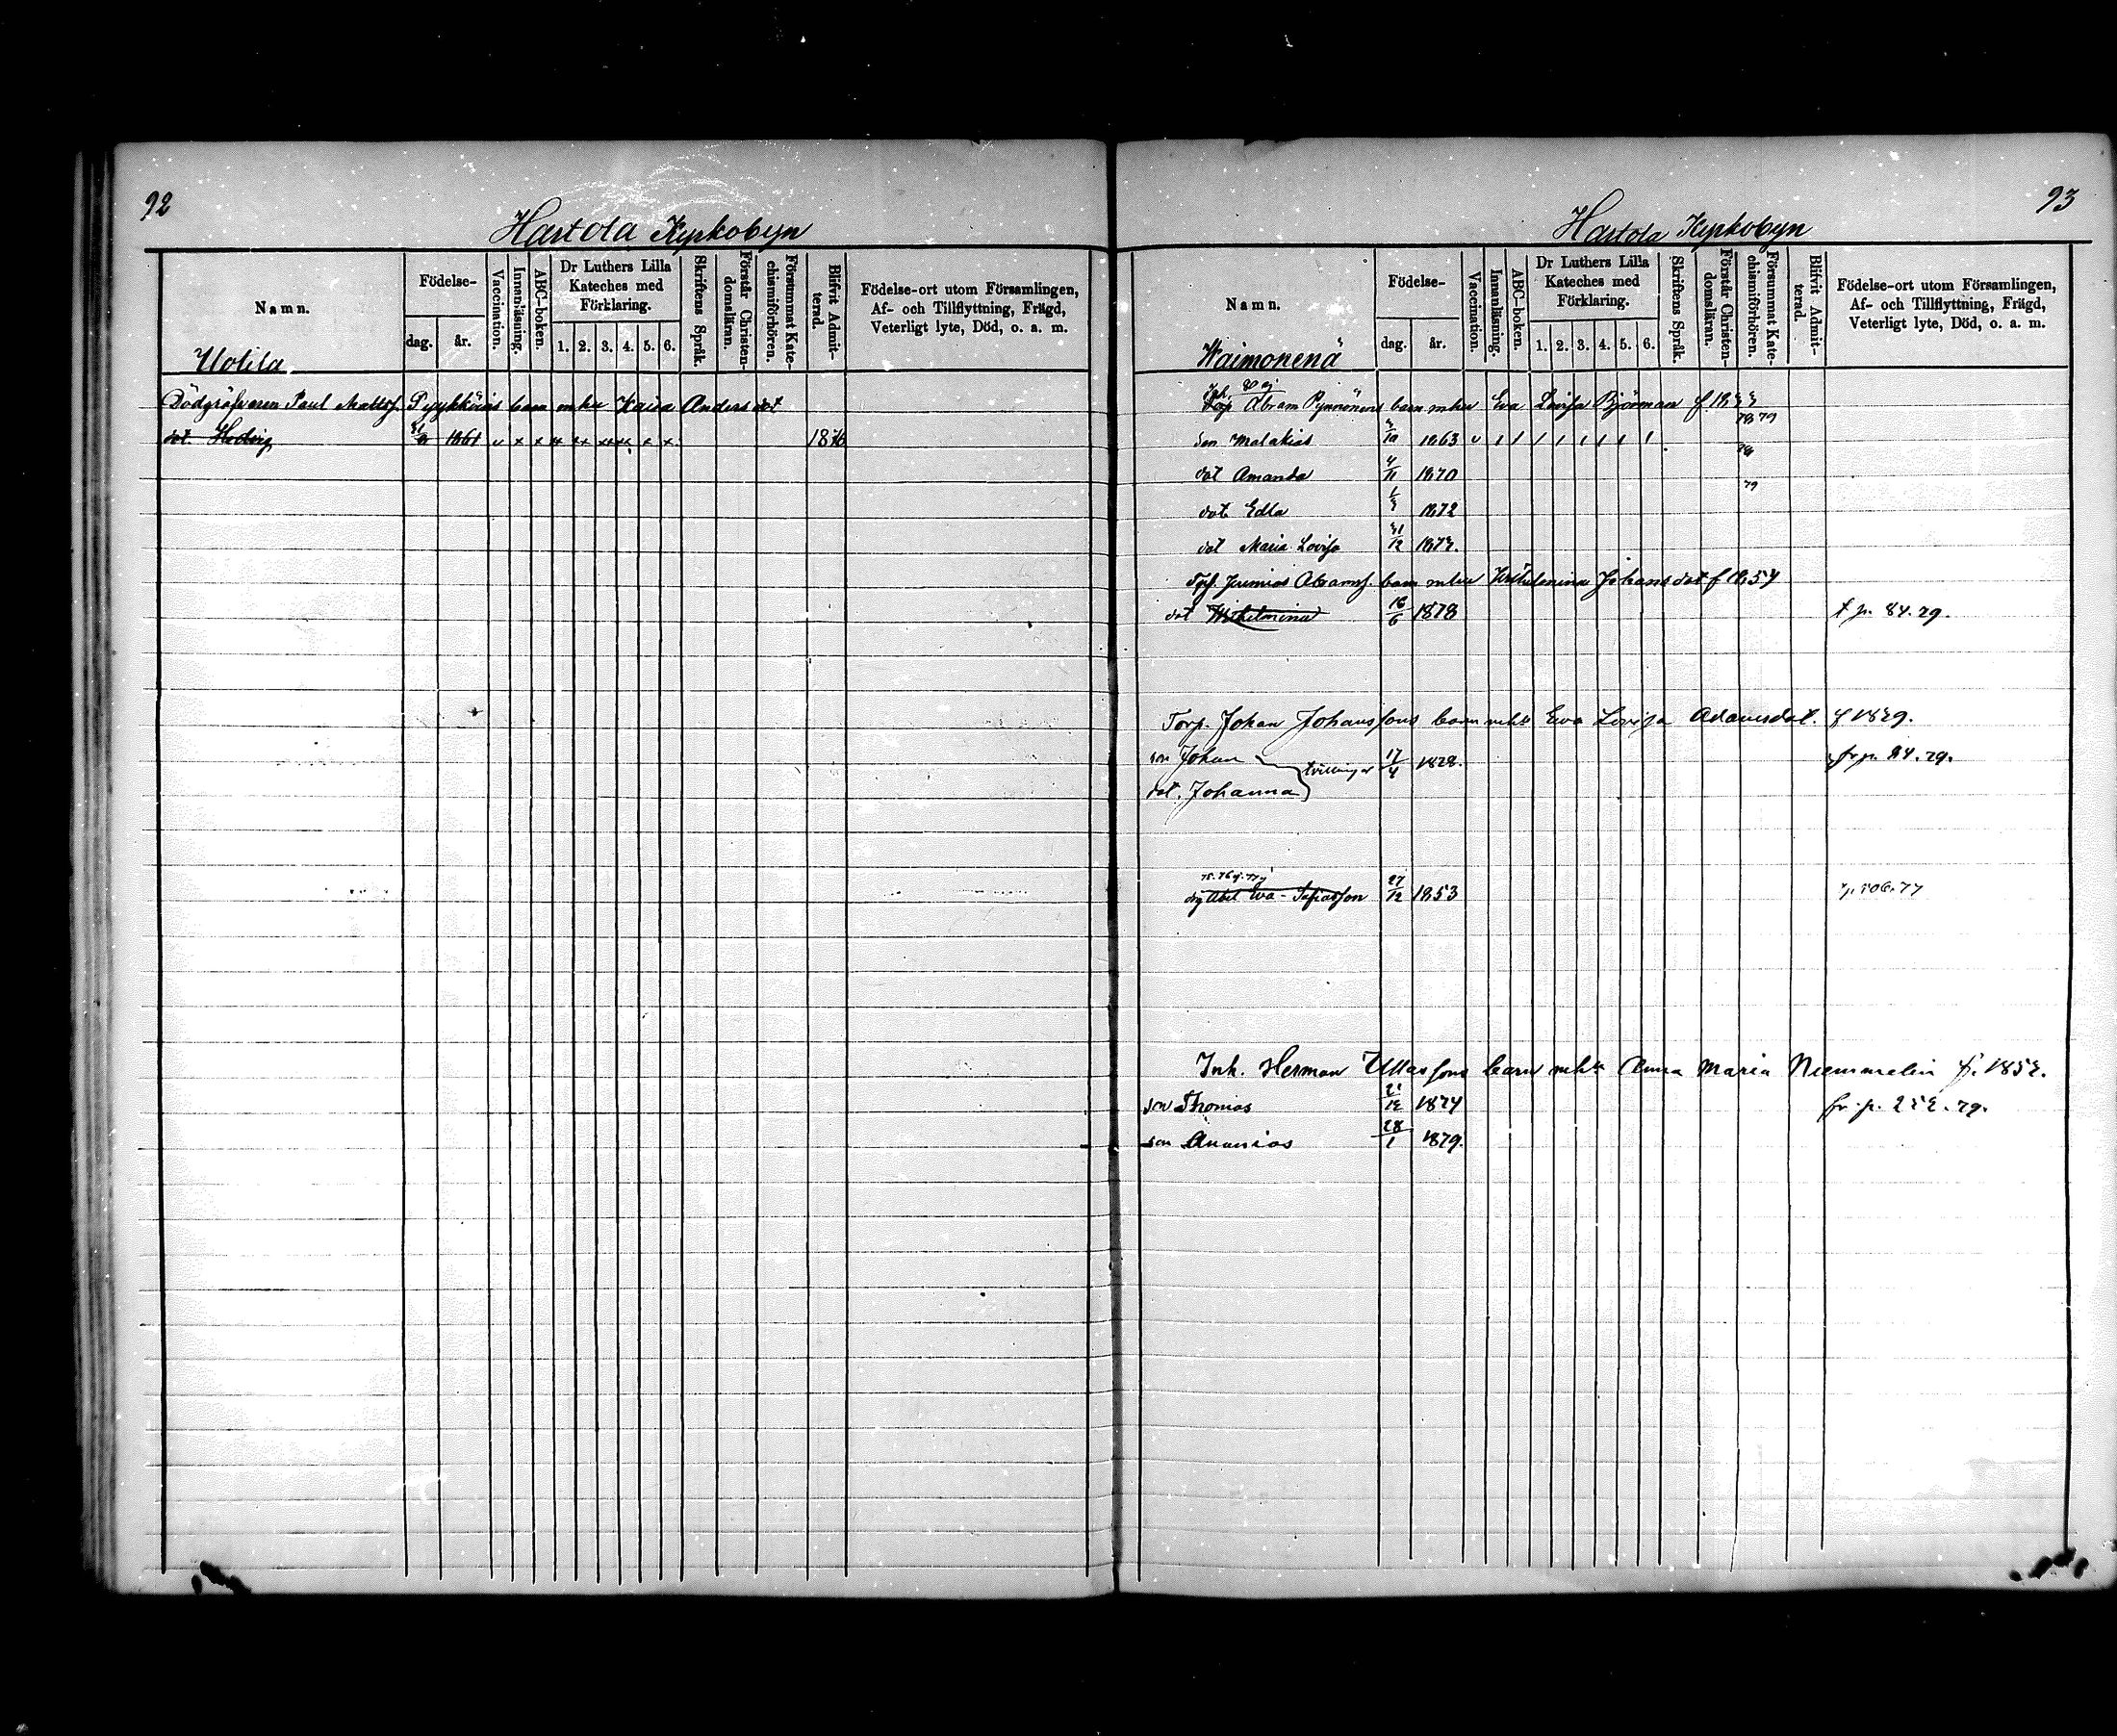 92
Hartola Kyrkobyn
Namn.
Födelse-
dag.
år.
Vaccination.
Innanläsning.
ABC-boken.
Dr Luthers Lilla Kateches med Förklaring.
1. 2. 3. 4. 5. 6.
Skriftens Språk.
Förstår Christendomsläran.
Försummat Katechismiförhören.
Blifvit Admitterad.
Födelse-ort utom Församlingen, Af- och Tillflyttning, Frägd, Veterligt lyte, Död, o. a. m.
Uotila
Dödgräfvaren Paul Mattss. Pyykköins barn mhu Kaisa Andersdot
dot Hedvig 1861 v x x x xx xx xx x x 1876
93
Hartola Kyrkobyn
Namn.
Födelse-
dag.
år.
Vaccination.
Innanläsning.
ABC-boken.
Dr Luthers Lilla Kateches med Förklaring.
1. 2. 3. 4. 5. 6.
Skriftens Språk.
Förstår Christendomsläran.
Försummat Katechismiförhören.
Blifvit Admitterad.
Födelse-ort utom Församlingen, Af- och Tillflyttning, Frägd, Veterligt lyte, Död, o. a. m.
Waimonenä
Inh.
Torp Abram Pynnönens barn mhu Eva Lovisa Björman f. 1833
78 79
son Malakias 3/10 1863 v / / / / / / / /
dot Amanda 4/11 1870
79
dot Edla 1/3 1872
dot Maria Lovisa 31/12 1873.
Torp. Jeremias Abramss. barn mhu Wilhelmina Johansdot f 1854
dot Wilhelmina 16/6 1878 t p. 84. 79.
Torp. Johan Johanssons barn mhu Ewa Lovisa Adamsdot. f 1829.
son Johan tvillingar 17/4 1878. fr p. 84. 79.
dot. Johanna
drg Abel Eva-Sofiasson 27/12 1853
Inh. Herman Ullassons barn mhu Anna Maria Niemmelin f. 1853.
son Thomas 1874 fr. p. 253. 79.
son Ananias 28/1 1879.